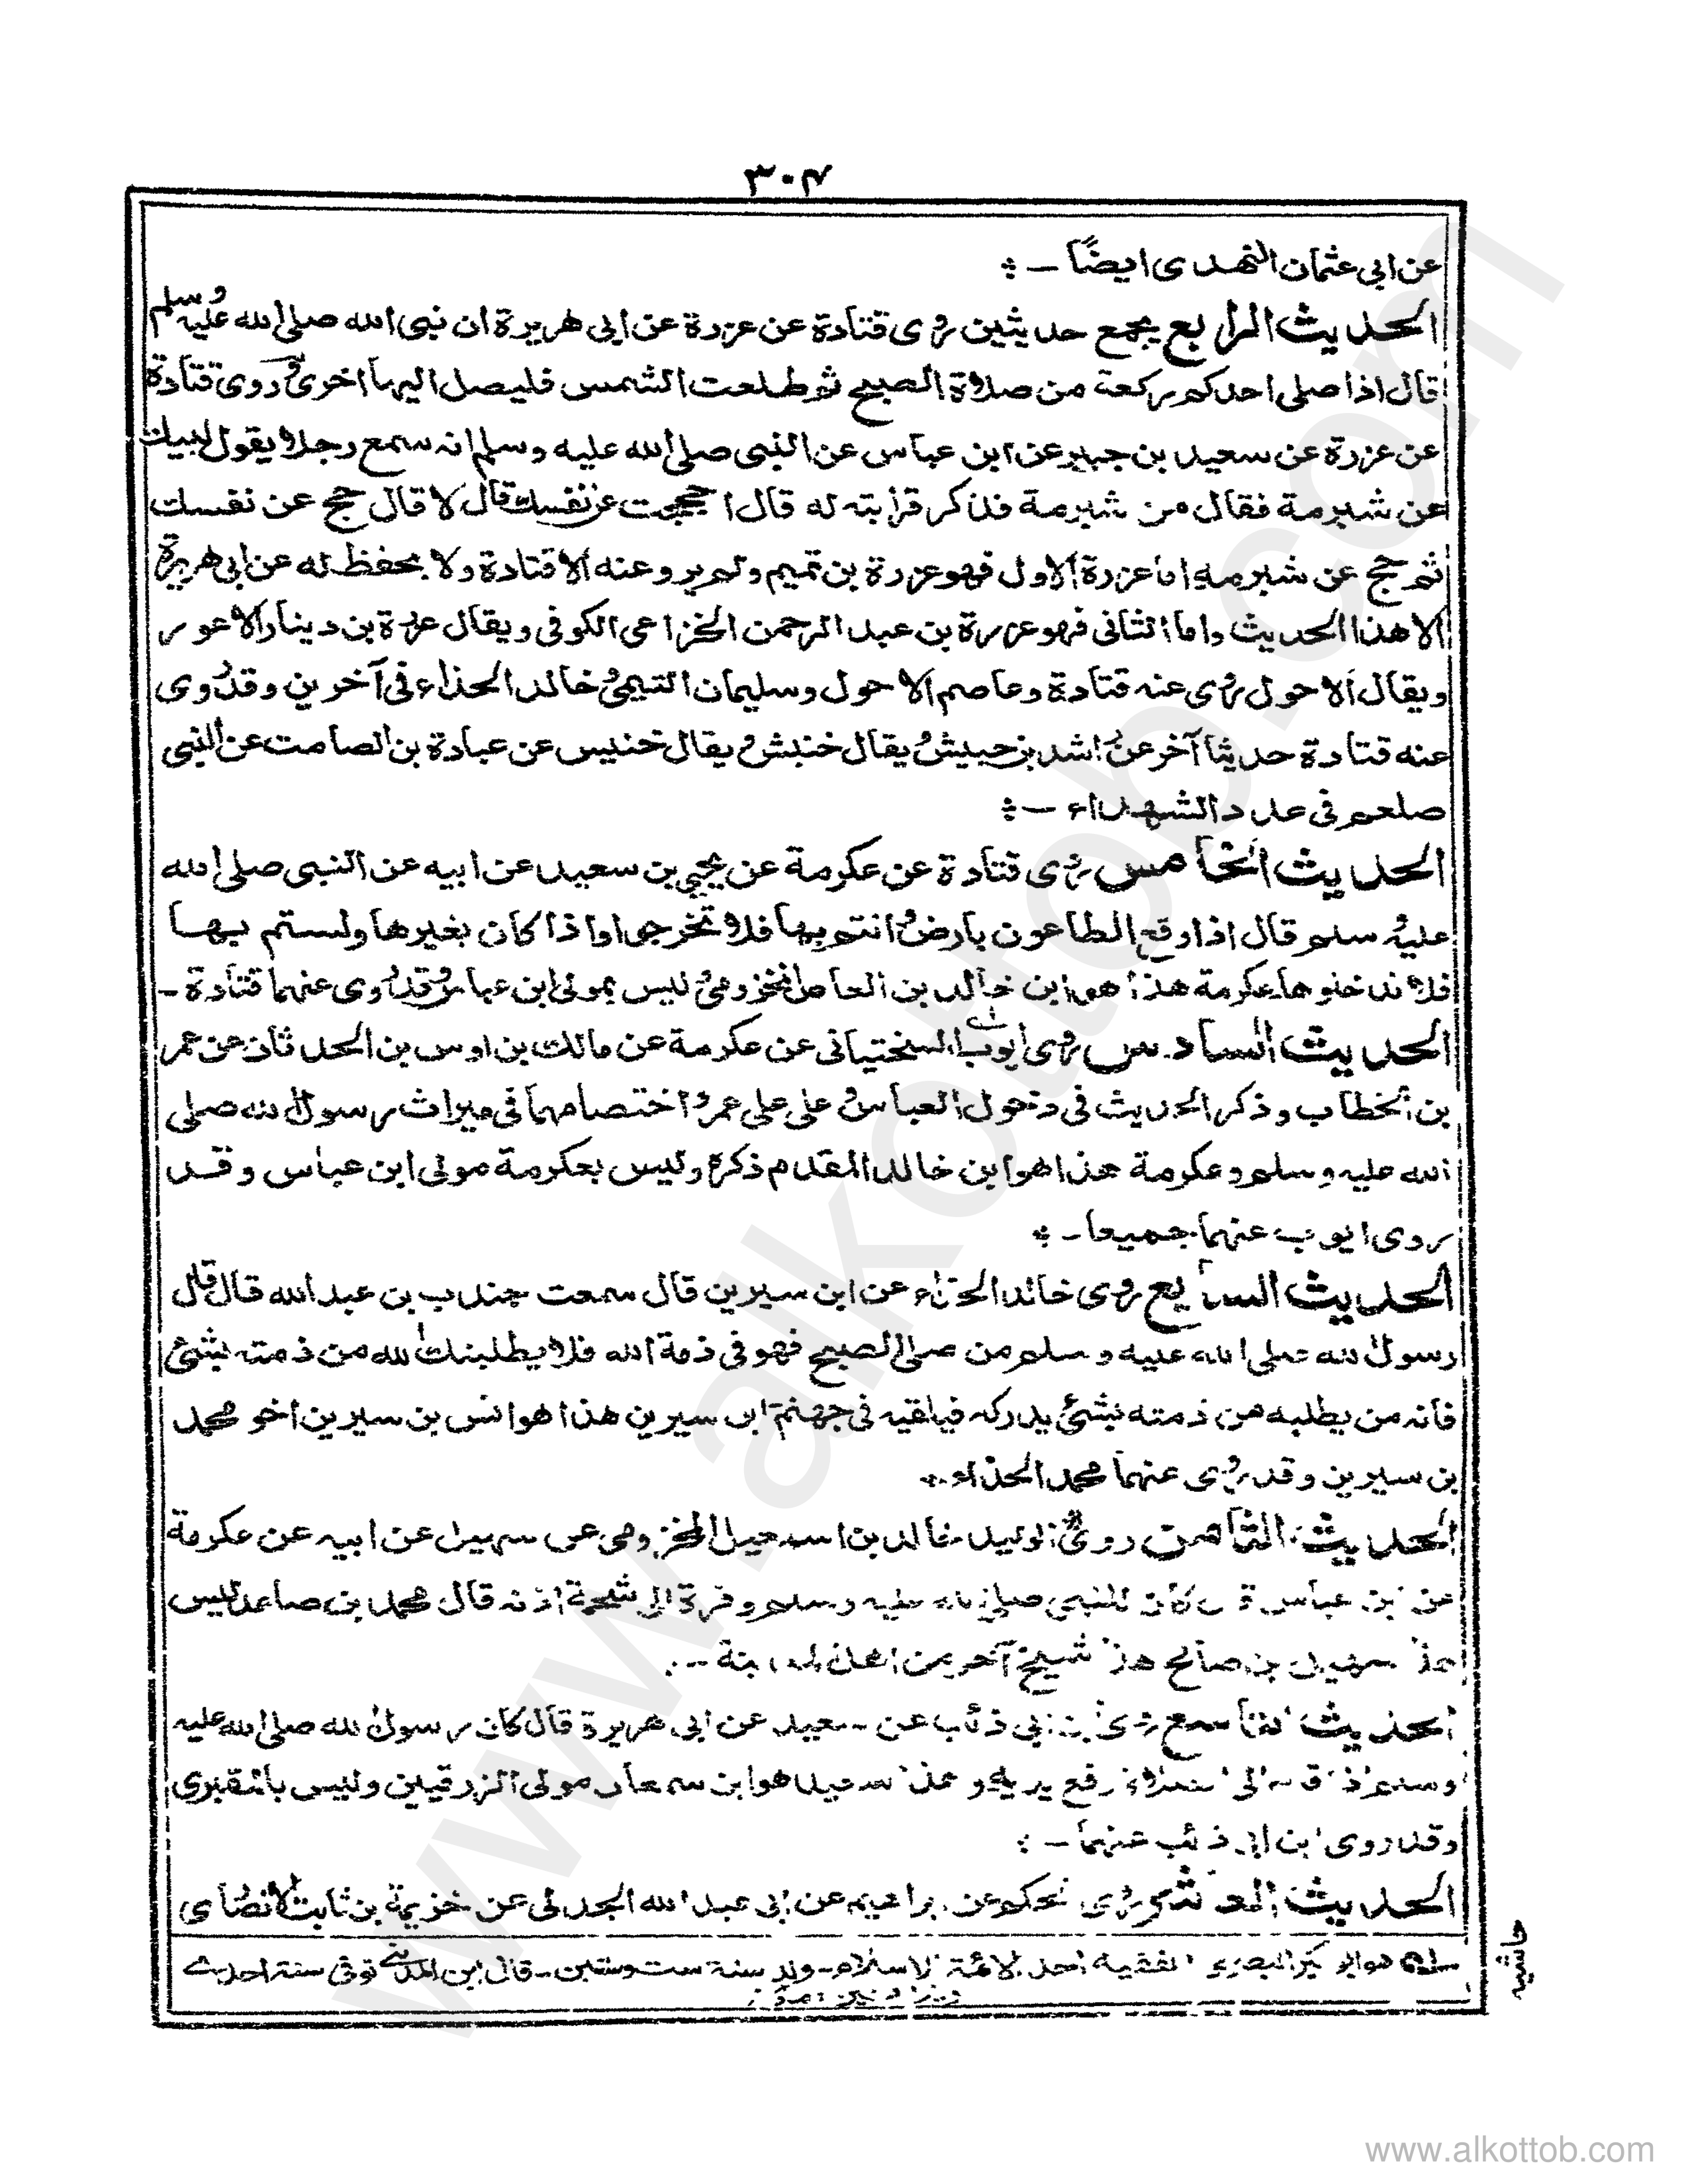 ٣٠٤
عن ابى عثمان النهدى ايضًا - ؞
الحديث الرابع يجمع حديثين روى قتادة عن عزرة عن ابى هريرة ان نبى الله صلى الله عليه وسلم
قال اذا صلى احدكم ركعة من صلاة الصبح ثم طلعت الشمس فليصل اليها اخرى وروى قتادة
عن عزرة عن سعيد بن جبير عن ابن عباس عن النبى صلى الله عليه وسلم انه سمع رجلا يقول لبيك
عن شبرمة فقال من شبرمة فذكر قرابته له قال احججت عن نفسك قال لا قال حج عن نفسك
ثم حج عن شبرمه اما عزرة الاول فهو عزرة بن تميم ولم يرو عنه الا قتادة ولا يحفظ له عن ابى هريرة
الا هذا الحديث واما الثانى فهو عزرة بن عبد الرحمن الخزاعى الكوفى ويقال عزرة بن دينار الاعور
ويقال الاحول روى عنه قتادة وعاصم الاحول وسليمان التيمى وخالد الحذاء فى آخرين وقد روى
عنه قتادة حديثا آخر عن راشد بن حبيش ويقال خنبش ويقال خنيس عن عبادة بن الصامت عن النبى
صلعم فى عدد الشهداء - ؞
الحديث الخامس روى قتادة عن عكرمة عن يحيى بن سعيد عن ابيه عن النبى صلى الله
عليه وسلم قال اذا وقع الطاعون بارض وانتم بها فلا تخرجوا واذا كان بغيرها ولستم بها
فلا تدخلوها عكرمة هذا هو ابن خالد بن العاص المخزومى وليس بمولى ابن عباس وقد روى عنهما قتادة -
الحديث السادس روى ايوب السختيانى عن عكرمة عن مالك بن اوس بن الحدثان عن عمر
بن الخطاب وذكر الحديث فى دخول العباس وعلى على عمر واختصامهما فى ميراث رسول الله صلى
الله عليه وسلم وعكرمة هذا هو ابن خالد المقدم ذكره وليس بعكرمة مولى ابن عباس وقد
روى ايوب عنهما جميعا - ؞
الحديث السابع روى خالد الحذاء عن ابن سيرين قال سمعت جندب بن عبد الله قال قال
رسول الله صلى الله عليه وسلم من صلى الصبح فهو فى ذمة الله فلا يطلبنك الله من ذمته بشئ
فانه من يطلبه من ذمته بشئ يدركه فيلقيه فى جهنم ابن سيرين هذا هو انس بن سيرين اخو محمد
بن سيرين وقد روى عنهما محمد الحذاء ؞
الحديث الثامن روى ابو الوليد خالد بن اسمعيل المخزومى عن سهيل عن ابيه عن عكرمة
عن ابن عباس قال كان للنبى صلى الله عليه وسلم وفرة الى شحمة اذنه قال محمد بن صاعد ليس
هذا سهيل بن صالح هذا شيخ آخر من اهل المدينة - .
الحديث التاسع روى ابن ابى ذئب عن سعيد عن ابى هريرة قال كان رسول الله صلى الله عليه
وسلم اذا قام الى الصلاة رفع يديه وهذا سعيد هو ابن سمعان مولى الزرقيين وليس بالمقبرى
وقد روى ابن ابى ذئب عنهما - ؞
الحديث العاشر روى الحكم عن ابراهيم عن ابى عبد الله الجدلى عن خزيمة بن ثابت الانصارى
هو ابو بكر البصرى الفقيه احد الائمة الاسلام - ولد سنة ست وستين - قال ابن المدينى توفى سنة احدى
حاشيه
www.alkottob.com
www.alkottob.com